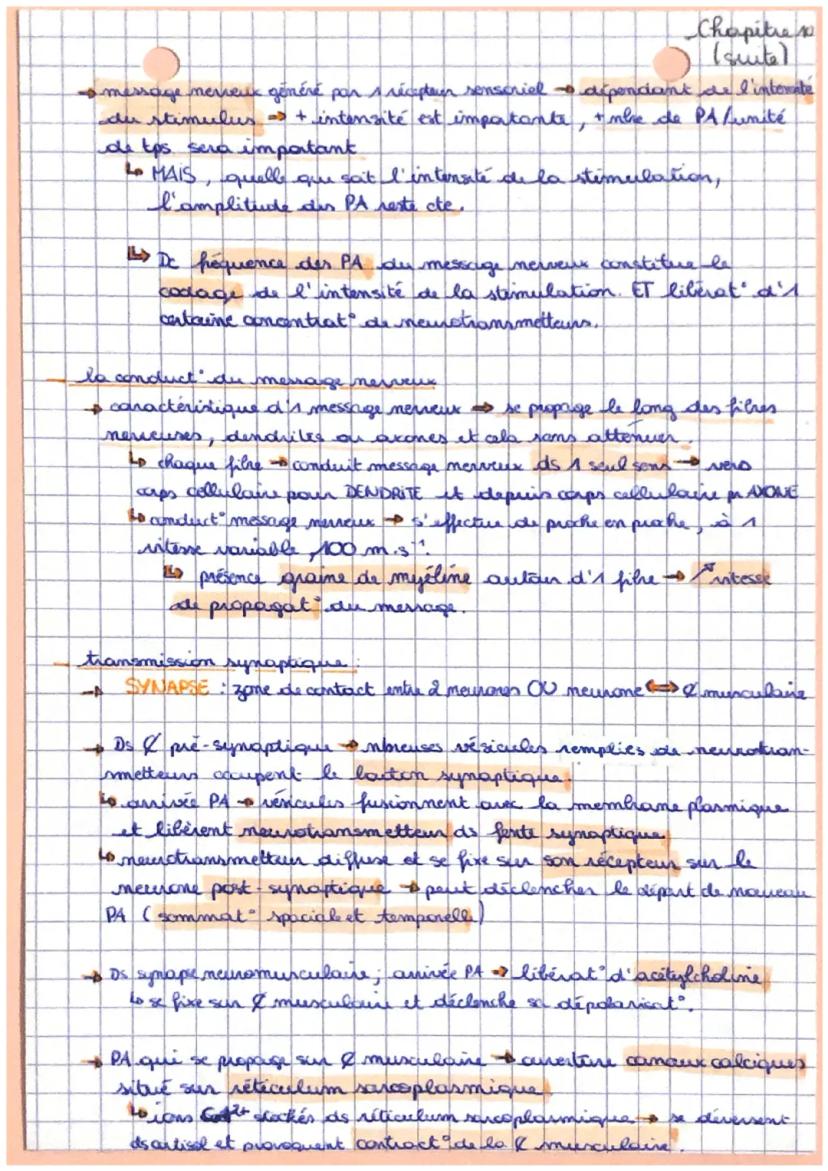 Chapitre 10
(suite)
→ message nerveux généré par 1 récepteur sensoriel → dépendant de l'intensité
du stimulus → + intensité est importante, + nbre de PA/unité
de tps sera important
↳ MAIS, quelle que soit l'intensité de la stimulation,
l'amplitude des PA reste cte.
↳ Dc fréquence des PA du message nerveux constitue le
codage de l'intensité de la stimulation. ET libérat° d'1
certaine concentrat° de neurotransmetteurs.
- la conduct° du message nerveux
→ caractéristique d'1 message nerveux → se propage le long des fibres
nerveuses, dendrites ou axones et cela sans atténuer
↳ chaque fibre → conduit message nerveux ds 1 seul sens → vers
corps cellulaire pour DENDRITE et depuis corps cellulaire pr AXONE
↳ conduct° message nerveux → s'effectue de proche en proche, à 1
vitesse variable, 100 m.s⁻¹.
↳ présence graine de myéline autour d'1 fibre → ↗ vitesse
de propagat° du message.
- transmission synaptique :
→ SYNAPSE : zone de contact entre 2 neurones OU neurone ↔ ₵ musculaire
→ Ds ₵ pré-synaptique → nbreuses vésicules remplies de neurotran-
smetteurs occupent le bouton synaptique.
↳ arrivée PA → vésicules fusionnent avec la membrane plasmique
et libèrent neurotransmetteur ds fente synaptique
↳ neurotransmetteur diffuse et se fixe sur son récepteur sur le
neurone post-synaptique → peut déclencher le départ de nouveau
PA (sommat° spaciale et temporelle)
→ Ds synapse neuromusculaire ; arrivée PA → libérat° d'acétylcholine
↳ se fixe sur ₵ musculaire et déclenche sa dépolarisat°.
→ PA qui se propage sur ₵ musculaire → ouverture canaux calciques
situé sur réticulum sarcoplasmique
↳ ions Ca²⁺ stockés ds réticulum sarcoplasmique → se déversent
ds cytosol et provoquent contract° de la ₵ musculaire.